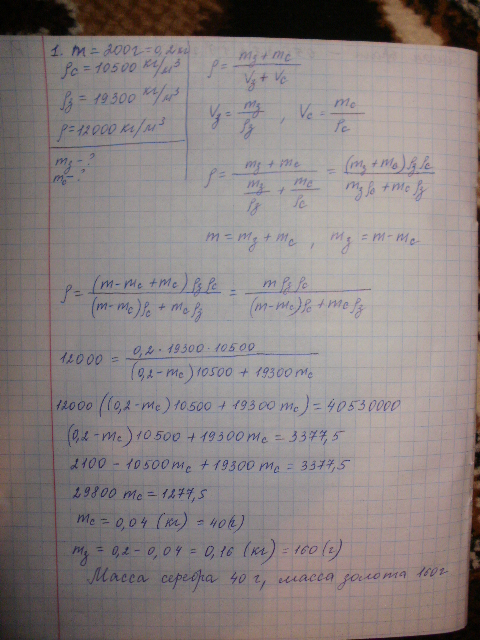 1. m = 200г = 0,2 кг
ρс = 10500 кг/м³
ρз = 19300 кг/м³
ρ = 12000 кг/м³
mз - ?
mс - ?
ρ = (mз + mс) / (Vз + Vс)
Vз = mз/ρз , Vс = mс/ρс
ρ = (mз + mс) / (mз/ρз + mс/ρс) = (mз + mс) ρз ρс / (mз ρс + mс ρз)
m = mз + mс , mз = m - mс
ρ = (m - mс + mс) ρз ρс / ((m - mс) ρс + mс ρз) = m ρз ρс / ((m - mс) ρс + mс ρз)
12000 = 0,2 · 19300 · 10500 / ((0,2 - mс) 10500 + 19300 mс)
12000 ((0,2 - mс) 10500 + 19300 mс) = 40530000
(0,2 - mс) 10500 + 19300 mс = 3377,5
2100 - 10500 mс + 19300 mс = 3377,5
29800 mс = 1277,5
mс = 0,04 (кг) = 40(г)
mз = 0,2 - 0,04 = 0,16 (кг) = 160(г)
Масса серебра 40 г, масса золота 160г